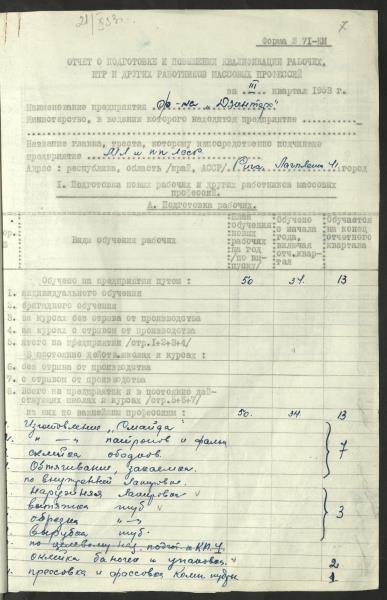 7
Форма № VI-КМ
ОТЧЕТ О ПОДГОТОВКЕ И ПОВЫШЕНИИ КВАЛИФИКАЦИИ РАБОЧИХ,
ИТР И ДРУГИХ РАБОТНИКОВ МАССОВЫХ ПРОФЕССИЙ
за III квартал 1953 г.
Наименование предприятия ф-ка „Дзинтарс"
Министерство, в ведении которого находится предприятие
Название главка, треста, которому непосредственно подчинено
предприятие МЛ и ПП ЛССР
Адрес: республика, область /край, АССР/ Рига город
I. Подготовка новых рабочих и других работников массовых
профессий.
А. Подготовка рабочих.
Виды обучения рабочих
План обучения новых рабочих на год /по выпуску/
Обучено с начала года, включая отч. квартал
Обучается на конец отчетного квартала
Обучено на предприятии путем: 50 34. 13
1. индивидуального обучения
2. бригадного обучения
3. на курсах без отрыва от производства
4. на курсах с отрывом от производства
5. итого на предприятии /стр.1+2+3+4/
В постоянно действ. школах и курсах:
6. без отрыва от производства
7. с отрывом от производства
8. Всего на предприятии и в постоянно действующих школах и курсах /стр.5+6+7/
из них по важнейшим профессиям: 50. 34 13
Изготовление
" — " патронов и
оклейка ободков.
Обтягивание, закатка.
7
по внутренней лакировке.
наружная лакировка
вытяжка туб.
обрезка " — "
вырубка туб.
3
по целевому
оклейка баночек и упаковка. 2
прессовка и фасовка комп. пудры 1